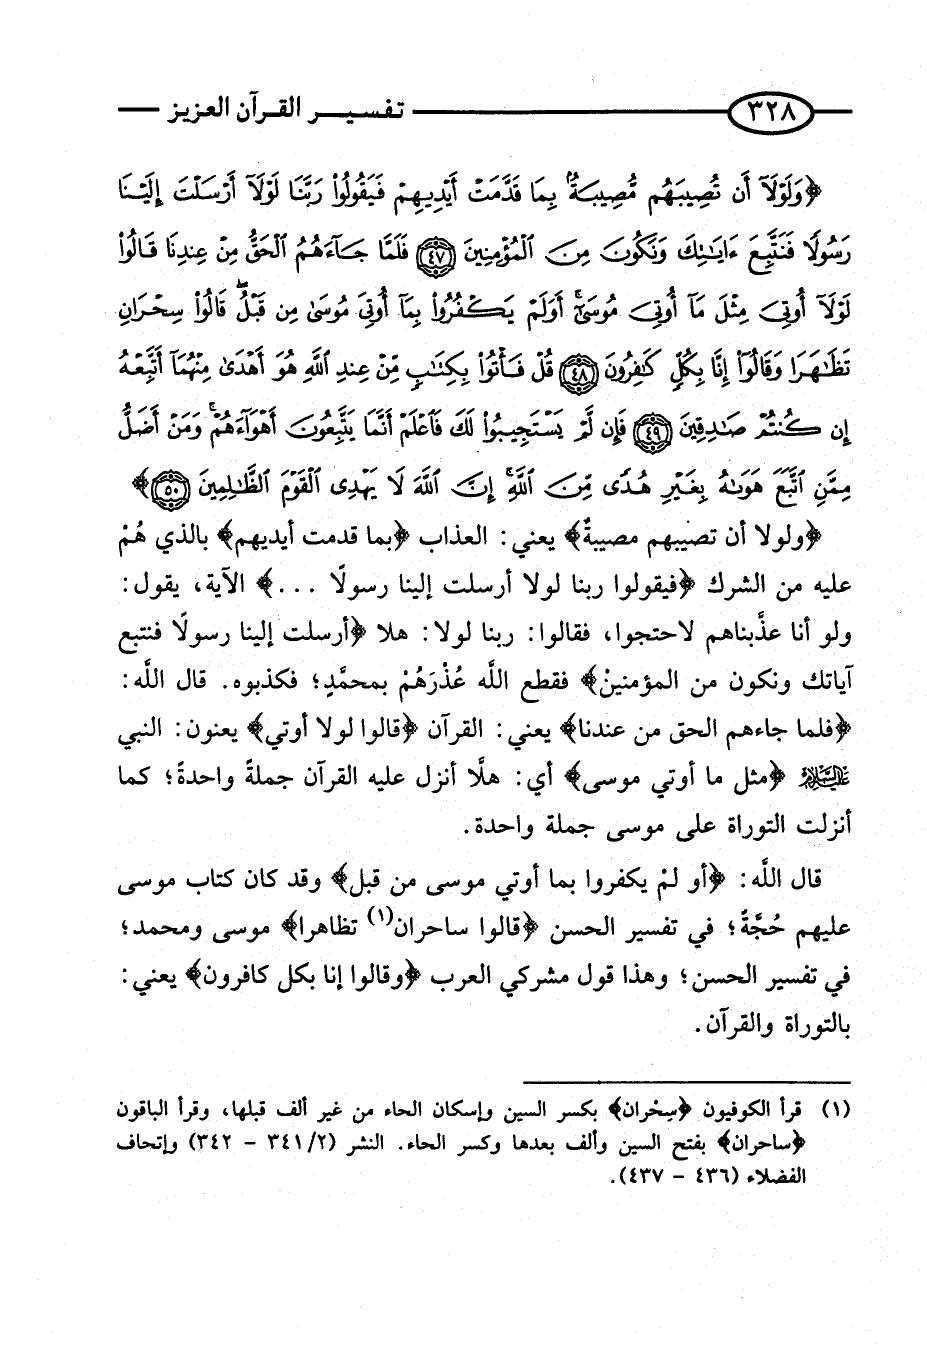 ٣٢٨ تفسير القرآن العزيز
﴿وَلَوْلَآ أَن تُصِيبَهُم مُّصِيبَةٌۢ بِمَا قَدَّمَتْ أَيْدِيهِمْ فَيَقُولُوا۟ رَبَّنَا لَوْلَآ أَرْسَلْتَ إِلَيْنَا
رَسُولًا فَنَتَّبِعَ ءَايَٰتِكَ وَنَكُونَ مِنَ ٱلْمُؤْمِنِينَ ٤٧ فَلَمَّا جَآءَهُمُ ٱلْحَقُّ مِنْ عِندِنَا قَالُوا۟
لَوْلَآ أُوتِىَ مِثْلَ مَآ أُوتِىَ مُوسَىٰٓ ۚ أَوَلَمْ يَكْفُرُوا۟ بِمَآ أُوتِىَ مُوسَىٰ مِن قَبْلُ ۖ قَالُوا۟ سِحْرَانِ
تَظَٰهَرَا وَقَالُوٓا۟ إِنَّا بِكُلٍّ كَٰفِرُونَ ٤٨ قُلْ فَأْتُوا۟ بِكِتَٰبٍ مِّنْ عِندِ ٱللَّهِ هُوَ أَهْدَىٰ مِنْهُمَآ أَتَّبِعْهُ
إِن كُنتُمْ صَٰدِقِينَ ٤٩ فَإِن لَّمْ يَسْتَجِيبُوا۟ لَكَ فَٱعْلَمْ أَنَّمَا يَتَّبِعُونَ أَهْوَآءَهُمْ ۚ وَمَنْ أَضَلُّ
مِمَّنِ ٱتَّبَعَ هَوَىٰهُ بِغَيْرِ هُدًى مِّنَ ٱللَّهِ ۚ إِنَّ ٱللَّهَ لَا يَهْدِى ٱلْقَوْمَ ٱلظَّٰلِمِينَ ٥٠﴾
﴿ولولا أن تصيبهم مصيبةٌ﴾ يعني: العذاب ﴿بما قدمت أيديهم﴾ بالذي هُمْ
عليه من الشرك ﴿فيقولوا ربنا لولا أرسلت إلينا رسولًا ...﴾ الآية، يقول:
ولو أنا عذَّبناهم لاحتجوا، فقالوا: ربنا لولا: هلا ﴿أرسلت إلينا رسولًا فنتبع
آياتك ونكون من المؤمنين﴾ فقطع اللَّه عُذْرَهُمْ بمحمَّدٍ؛ فكذبوه. قال اللَّه:
﴿فلما جاءهم الحق من عندنا﴾ يعني: القرآن ﴿قالوا لولا أوتي﴾ يعنون: النبي
عليه السلام ﴿مثل ما أوتي موسى﴾ أي: هلَّا أنزل عليه القرآن جملةً واحدةً؛ كما
أنزلت التوراة على موسى جملة واحدة.
قال اللَّه: ﴿أو لمْ يكفروا بما أوتي موسى من قبل﴾ وقد كان كتاب موسى
عليهم حُجَّةً؛ في تفسير الحسن ﴿قالوا ساحران(١) تظاهرا﴾ موسى ومحمد؛
في تفسير الحسن؛ وهذا قول مشركي العرب ﴿وقالوا إنا بكل كافرون﴾ يعني:
بالتوراة والقرآن.
(١) قرأ الكوفيون ﴿سِحْران﴾ بكسر السين وإسكان الحاء من غير ألف قبلها، وقرأ الباقون
﴿ساحران﴾ بفتح السين وألف بعدها وكسر الحاء. النشر (٢/ ٣٤١ - ٣٤٢) وإتحاف
الفضلاء (٤٣٦ - ٤٣٧).